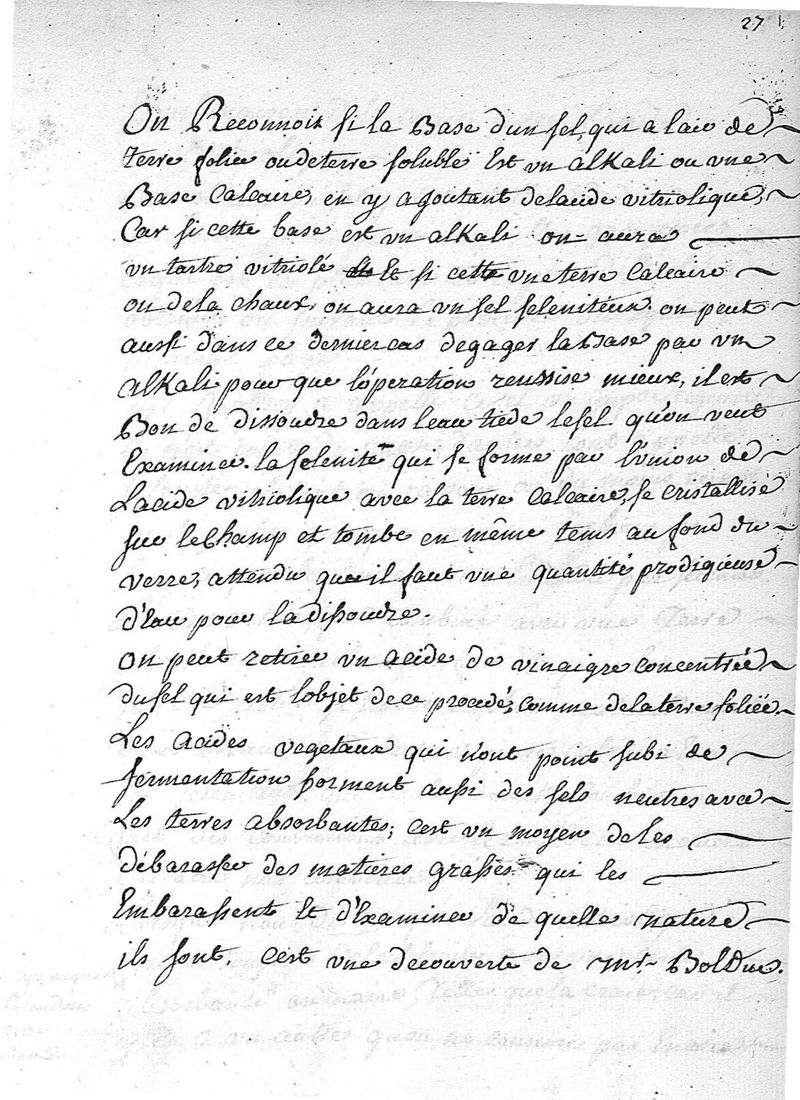 27
On Reconnoit si la Base d'un sel, qui a l'air de
terre foliée ou de terre soluble Est un alKali ou une
Base Calcaire, en y ajoutant de l'acide vitriolique,
Car si cette base est un alKali on aura
un tartre vitriolé Et si cette une terre Calcaire
ou de la chaux, on aura un sel seleniteux. on peut
aussi dans ce dernier cas degager la Base par un
alKali pour que l'opération reussise mieux, il est
Bon de dissoudre dans l'eau tiede le sel qu'on veut
Examiner. la selenite qui se forme par l'union de
L'acide vitriolique avec la terre Calcaire, se cristallise
sur le champ et tombe en même tems au fond du
verre, attendu qu'il faut une quantité prodigieuse
d'Eau pour la dissoudre.
On peut retirer un acide de vinaigre concentrée
du sel qui est l'objet de ce procédé, comme de la terre foliée.
Les Acides vegetaux qui n'ont point subi de
fermentation forment aussi des sels neutres avec
Les terres absorbantes; c'est un moyen de les
débarasser des matieres grasses qui les
Embarassent Et d'Examiner de quelle nature
ils sont. C'est une decouverte de Mr. BolDuc.